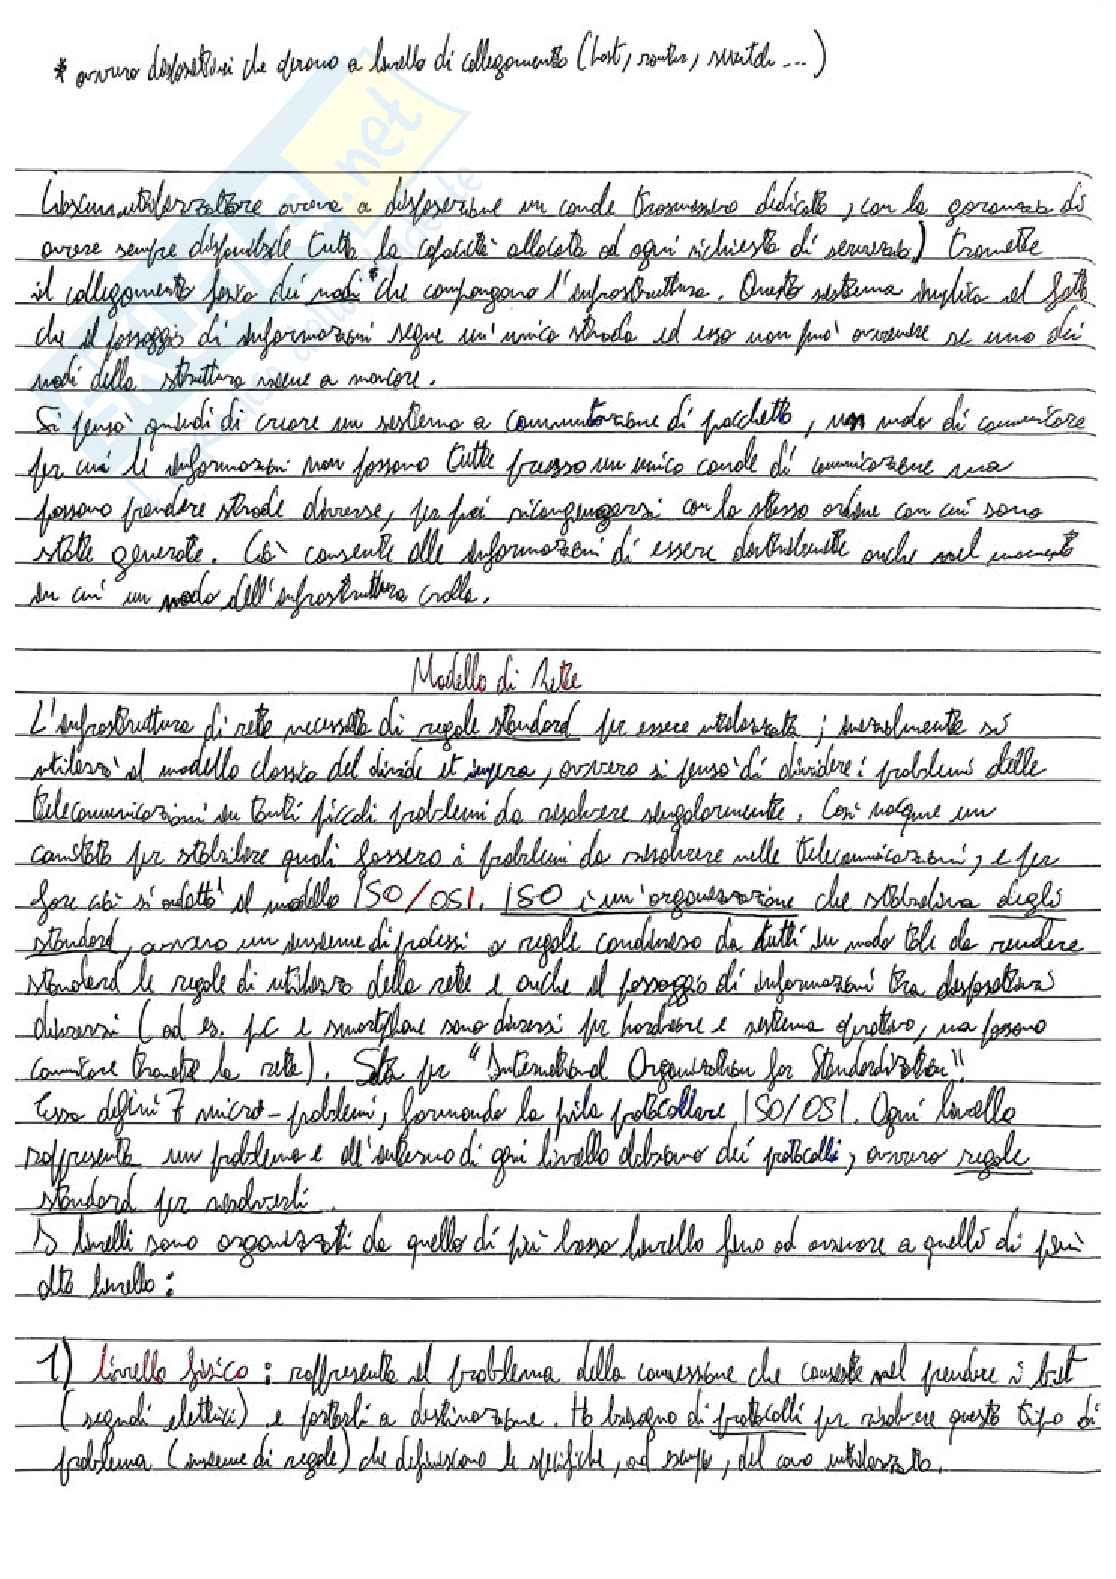 * ovvero dispositivi che operano a livello di collegamento (host, router, switch ...)
Ciascun utilizzatore aveva a disposizione un canale trasmissivo dedicato, con la garanzia di
avere sempre disponibile tutta la capacità allocata ad ogni richiesta di servizio) tramite
il collegamento fisico dei nodi* che compongono l'infrastruttura. Questo sistema implica il fatto
che il passaggio di informazioni segue un'unica strada ed esso non può avvenire se uno dei
nodi della struttura viene a mancare.
Si pensò quindi di creare un sistema a commutazione di pacchetto, un modo di comunicare
per cui le informazioni non passano tutte presso un unico canale di comunicazione ma
possono prendere strade diverse, per poi ricongiungersi con lo stesso ordine con cui sono
state generate. Ciò consente alle informazioni di essere distribuite anche nel momento
in cui un nodo dell'infrastruttura crolla.
Modello di Rete
L'infrastruttura di rete necessita di regole standard per essere utilizzata; inizialmente si
utilizzò il modello classico del divide et impera, ovvero si pensò di dividere i problemi delle
telecomunicazioni in tanti piccoli problemi da risolvere singolarmente. Così nacque un
comitato per stabilire quali fossero i problemi da risolvere nelle telecomunicazioni, e per
fare ciò si adottò il modello ISO/OSI. ISO è un'organizzazione che stabiliva degli
standard, ovvero un insieme di processi e regole condiviso da tutti in modo tale da rendere
standard le regole di utilizzo della rete e anche il passaggio di informazioni tra dispositivi
diversi (ad es. pc e smartphone sono diversi per hardware e sistema operativo, ma possono
comunicare tramite la rete). Sta per "International Organization for Standardization".
Essa definì 7 micro-problemi, formando la pila protocollare ISO/OSI. Ogni livello
rappresenta un problema e all'interno di ogni livello abbiamo dei protocolli, ovvero regole
standard per risolverli.
I livelli sono organizzati da quello di più basso livello fino ad arrivare a quelli di più
alto livello:
1) livello fisico: rappresenta il problema della connessione che consiste nel prendere i bit
(segnali elettrici) e portarli a destinazione. Ho bisogno di protocolli per risolvere questo tipo di
problema (insieme di regole) che definiscono le specifiche, ad esempio, del cavo utilizzato.